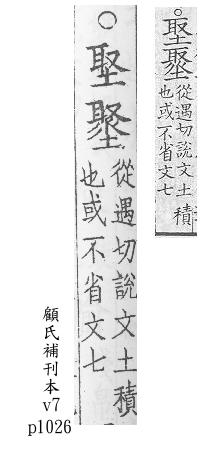 ○埾
從遇切說文土積
也或不省文七
○埾
從遇切說文土積
也或不省文七
顧氏補刊本
v7
p1026